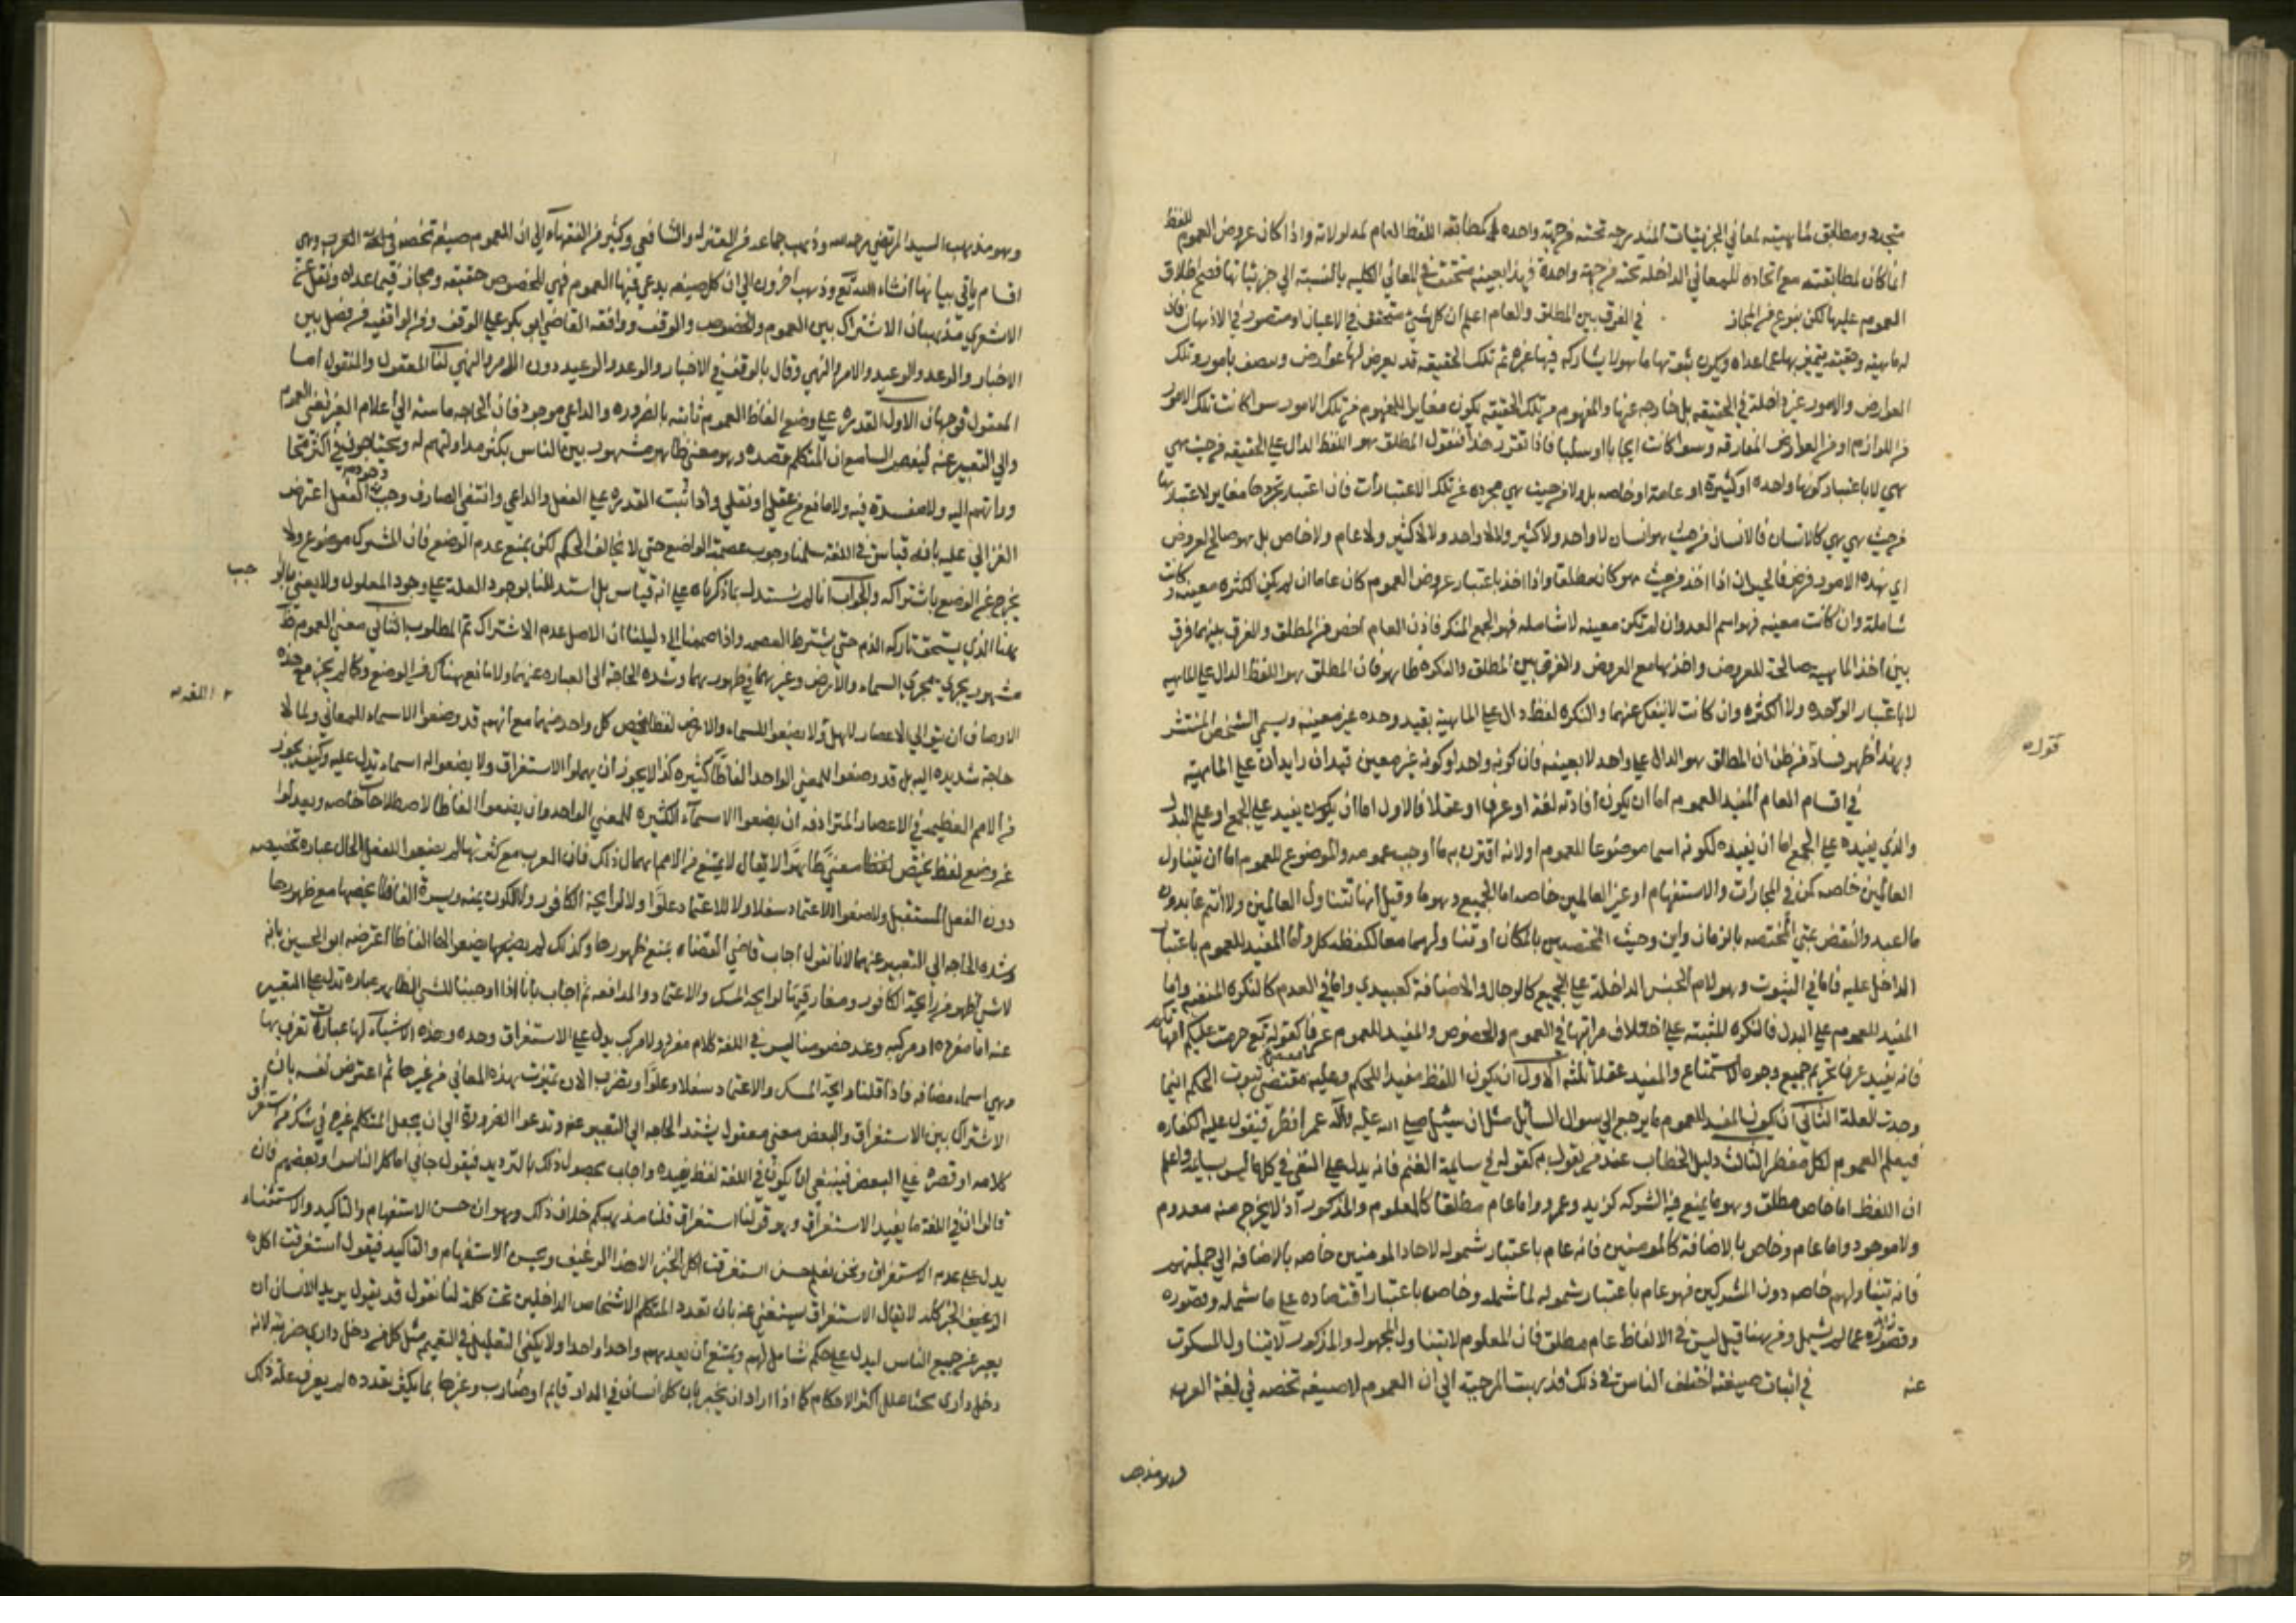 متجدد ومطابق لماهيته لمعاني الجزئيات المندرجة تحته من جهة واحدة كمطابقة اللفظ العام لمدلولاته واذا كان عروض العموم للفظ
انما كان لمطابقته مع اتحاده للمعاني الداخلة تحته من جهة واحدة فهذا بعينه متحقق في المعاني الكلية بالنسبة الي جزئياتها فصح اطلاق
العموم عليها لكن بنوع من المجاز في الفرق بين المطلق والعام اعلم ان كل شئ متحقق في الاعيان او متصور في الاذهان فان
له ماهية وحقيقة يتميز بها عما عداه ويكون بثبوتها ما هو لا يشاركه فيها غيره ثم تلك الحقيقة قد يعرض لها عوارض ويتصف بامور وتلك
العوارض والامور غير داخلة في الحقيقة بل خارجه عنها والمفهوم من تلك الحقيقة يكون مغايرا للمفهوم من تلك الامور سوا كانت تلك الامور
من اللوازم او من العوارض المفارقة وسوا كانت ايجابا او سلبا فاذا تقرر هذا فنقول المطلق هو اللفظ الدال علي الحقيقة من حيث هي
هي لا باعتبار كونها واحدة او كثيرة او عامة او خاصه بل ولا من حيث هي مجرده عن تلك الاعتبارات فان اعتبار تجردها مغاير لاعتبارها
من حيث هي هي كالانسان فالانسان من حيث هو انسان لا واحد ولا كثير ولا لا واحد ولا لا كثير ولا عام ولا خاص بل هو صالح لعروض
اي هذه الامور فرض فالحيوان اذا اخذ من حيث هو كان مطلقا واذا اخذ باعتبار عروض العموم كان عاما ان لم يكن الكثرة معينة وكانت
شاملة وان كانت معينه فهو اسم العدد وان لم تكن معينه لا شاملة فهو الجمع المنكر فاذن العام اخص من المطلق والفرق بينهما فرق
بين اخذ الماهية صالحة للعروض واخذها مع العروض والفرق بين المطلق والنكره ظاهر فان المطلق هو اللفظ الدال علي الماهيه
لا باعتبار الوحده ولا الكثرة وان كانت لا ينفك عنهما والنكره لفظ دال علي الماهية بقيد وحده غير معينه ويسمي الشخص المنتشر
قوله
وبهذا ظهر فساد من ظن ان المطلق هو الدال علي واحد لا بعينه فان كونه واحدا وكونه غير معين قيدان زايدان علي الماهية
في اقسام العام المفيد للعموم اما ان يكون افادته لغة او عرفا او عقلا فالاول اما ان يكون يفيد علي الجمع او علي البدل
والذي يفيده علي الجمع اما ان يفيده لكونه اسما موضوعا للعموم او لانه اقترن به ما اوجب عمومه والموضوع للعموم اما ان يتناول
العالمين خاصه كمن في المجازات والاستفهام او غير العالمين خاصه اما الجميع وهو ما وقيل انها تتناول العالمين ولا انتم عابدون
ما اعبد والنقض بمتي المختصه بالزمان واين وحيث المختصين بالمكان او تناولهما معا كلفظه كل واما المفيد للعموم باعتبار
الداخل عليه فاما في الثبوت وهو لام الجنس الداخلة علي الجمع كالرجال والاضافة كعبيدي واما في العدم كالنكره المنفيه واما
المفيد للعموم علي البدل فالنكره المثبته علي اختلاف مراتبها في العموم والخصوص والمفيد للعموم عرفا كقوله تع حرمت عليكم امهاتكم
فانه يفيد عرفا تحريم جميع وجوه الاستمتاع والمفيد عقلا ثلثه الاول ان يكون اللفظ مفيدا للحكم وعليه مقتضي ثبوت الحكم اينما
وجدت العلة الثاني ان يكون المفيد للعموم ما يرجع الي سوال السايل مثل ان سئل صلي الله عليه واله عمن افطر فيقول عليه الكفاره
فيعلم العموم لكل مفطر الثالث دليل الخطاب عند من يقول به كقوله في سايمة الغنم فانه يدل علي النفي في كل ما ليس بسايمة واعلم
ان اللفظ اما خاص مطلق وهو ما يمنع فيه الشركه كزيد وعمرو واما عام مطلقا كالمعلوم والمذكور اذ لا يخرج منه معدوم
ولا موجود واما عام وخاص بالاضافة كالمومنين فانه عام باعتبار شموله لاحاد المومنين خاصه بالاضافه الي جملتهم
فانه تناولهم خاصه دون المشركين فهو عام باعتبار شموله لما شمله وخاص باعتبار اقتصاده علي ما شمله وقصوره
وقصوره عما لم يشمل ومن هنا قيل ليس في الالفاظ عام مطلق فان المعلوم لا يتناول المجهول والمذكور لا يتناول المسكوت
عنه في اثبات صيغته اختلف الناس في ذلك فذهبت المرجية الي ان العموم لا صيغه تخصه في لغة العرب
وهو مذهب السيد المرتضي رحمه الله وذهب جماعه من المعتزله والشافعي وكثير من الفقهاء الي ان للعموم صيغه تخصه في لغة العرب وهي
اقسام ياتي بيانها انشاء الله تع وذهب اخرون الي ان كل صيغه يدعي فيها العموم فهي للخصوص حقيقه ومجاز فيما عداه ونقل عن
الاشعري مذهبان الاشتراك بين العموم والخصوص والوقف ووافقه القاضي ابو بكر علي الوقف ومن الواقفيه من فصل بين
الاخبار والوعد والوعيد والامر والنهي وقال بالوقف في الاخبار والوعد والوعيد دون الامر والنهي لنا المعقول والمنقول اما
المعقول فوجهان الاول القدره علي وضع الفاظ العموم ثابته بالضروره والداعي موجود فان الحاجه ماسه الي اعلام الغير لمعني العموم
والي التعبير عنه ليفهم السامع ان المتكلم قصده وهو معني ظاهر مشهور بين الناس يكثر مداولتهم له ويحتاجون في اكثر
ولا مفسدة فيه ولا مانع من عقلي او نقلي واذا ثبت القدره علي الفعل والداعي وانتفي الصارف وجب وجود الفعل اعترض
الغزالي عليه بانه قياس في اللغة سلمنا وجوب عصمة الواضع حتي لا يخالف الحكم لكن يمنع عدم الوضع فان المشترك موضوع ولا
يخرج عن الوضع باشتراكه والجواب انا لم نستدل بما ذكرناه علي انه قياس بل استدللنا بوجود العلة علي وجود المعلول ولا يعني
هنا الذي يستحق تاركه الذم حتي يشترط العصمه واذا ضممنا الي دليلنا ان الاصل عدم الاشتراك تم المطلوب الثاني معني العموم ظ
مشهور يجري مجري السماء والارض وغيرهما في ظهورهما وشده الحاجة الي العباره عنهما ولا مانع هناك من الوضع وكما لم يجز مع هذه
الاوصاف ان يتوالي الاعصار لاهل ولا يضعوا للسماء والارض لفظا يخص كل واحد منهما مع انهم قد وضعوا الاسماء للمعاني ولما لا
حاجة شديده اليه بل قد وضعوا للمعني الواحد الفاظا كثيره كذا لا يجوز ان يهملوا الاستغراق ولا يضعوا له اسماء تدل عليه وكيف يجوز
من الامم العظيمه في الاعصار المترادفه ان يضعوا الاسماء الكثيره للمعني الواحد وان يضعوا الفاظا لاصطلاحات خاصه ويعدلوا
عن وضع لفظ يختص لفظا معني ظاهرا لا يقال لا يمتنع من الامم اهمال ذلك فان العرب مع كثرتها لم يضعوا للفعل الحال عباره تخصه
دون الفعل المستقبل ولا وضعوا للاعتماد سفلا ولا للاعتماد علوا ولا لرايحة الكافور ولا للكون يمنه ويسرة الفاظا تخصها مع ظهورها
وشده الحاجه الي التعبير عنها لانا نقول اجاب قاضي القضاه بمنع ظهورها وكذلك لم يضعوا لها الفاظا اعترضه ابو الحسين بانه
لا شئ اظهر من رايحة الكافور ومفارقتها لرايحة المسك والاعتماد والمدافعه ثم اجاب بانا اذا اوجبنا للشئ الظاهر عباره تدل علي التعبير
عنه اما مفرده او مركبه وعند خصومنا ليس في اللغة كلام مفرد ولا مركب يدل علي الاستغراق وحده وهذه الاشياء لها عبارات تعرف بها
وهي اسماء مضافه فاذا قلنا رايحة المسك والاعتماد سفلا وعلوا ويضرب الان تميزت بهذه المعاني من غيرها ثم اعترض نفسه بان
الاشتراك بين الاستغراق والبعض معني معقول يشتد الحاجه الي التعبير عنه وتدعوا الضرورة الي ان يجعل المتكلم غيره في شك من استغراق
كلامه او قصره علي البعض فينبغي ان يكون في اللغة لفظ يفيده واجاب بحصول ذلك بالترديد فيقول جاني اما كل الناس او بعضهم فان
قالوا ان في اللغة ما يفيد الاستغراق وهو قولنا استغراق قلنا مذهبكم خلاف ذلك وهو ان حسن الاستفهام والتاكيد والاستثناء
يدل علي عدم الاستغراق ونحن نعلم حسن استغرقت اكل الخبز الا هذا الرغيف ويحسن الاستفهام والتاكيد فيقول استغرقت اكل
الرغيف الخبز كله لا يقال الاستغراق يستغني عنه بان تعدد المتكلم الاشخاص الداخلين تحت كلمة لنا نقول قد يقول يريد الانسان ان
يعبر عن جميع الناس ليدل علي حكم شامل لهم ويمتنع ان يعدهم واحدا واحدا ولا يكفي التعليل في التعميم مثل كل من دخل داري ضربته لانه
دخل داري اكثر الاحكام كما اذا اراد ان يخبر بان كل انسان في الدار قايم او ضارب وغيرها بما يكثر تعدده لم يعرف علة ذلك